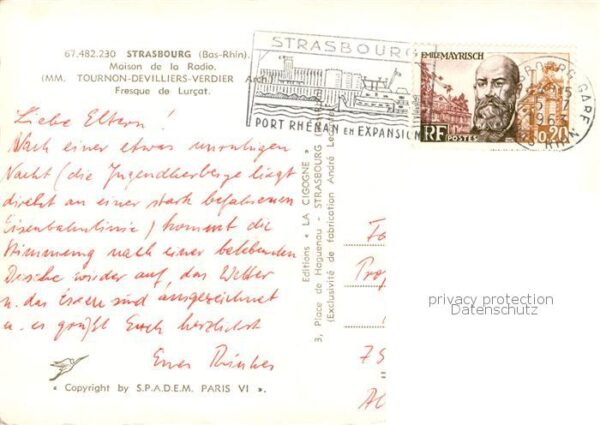 67.482.230 STRASBOURG (Bas-Rhin).
Maison de la Radio.
(MM. TOURNON-DEVILLIERS-VERDIER Arch.)
Fresque de Lurçat.
STRASBOURG
PORT RHÉNAN EN EXPANSION
EMILE MAYRISCH
RF POSTES 0,20
1963
GARE
Liebe Eltern!
Nach einer etwas unruhigen
Nacht (die Jugendherberge liegt
direkt an einer stark befahrenen
Eisenbahnlinie) kommt die
Stimmung nach einer belebenden
Dusche wieder auf, das Wetter
u. das Essen sind ausgezeichnet
u. es grüßt Euch herzlichst
Euer
Editions « LA CIGOGNE »
3, Place de Haguenau - STRASBOURG
(Exclusivité de fabrication André
privacy protection
Datenschutz
« Copyright by S.P.A.D.E.M. PARIS VI ».